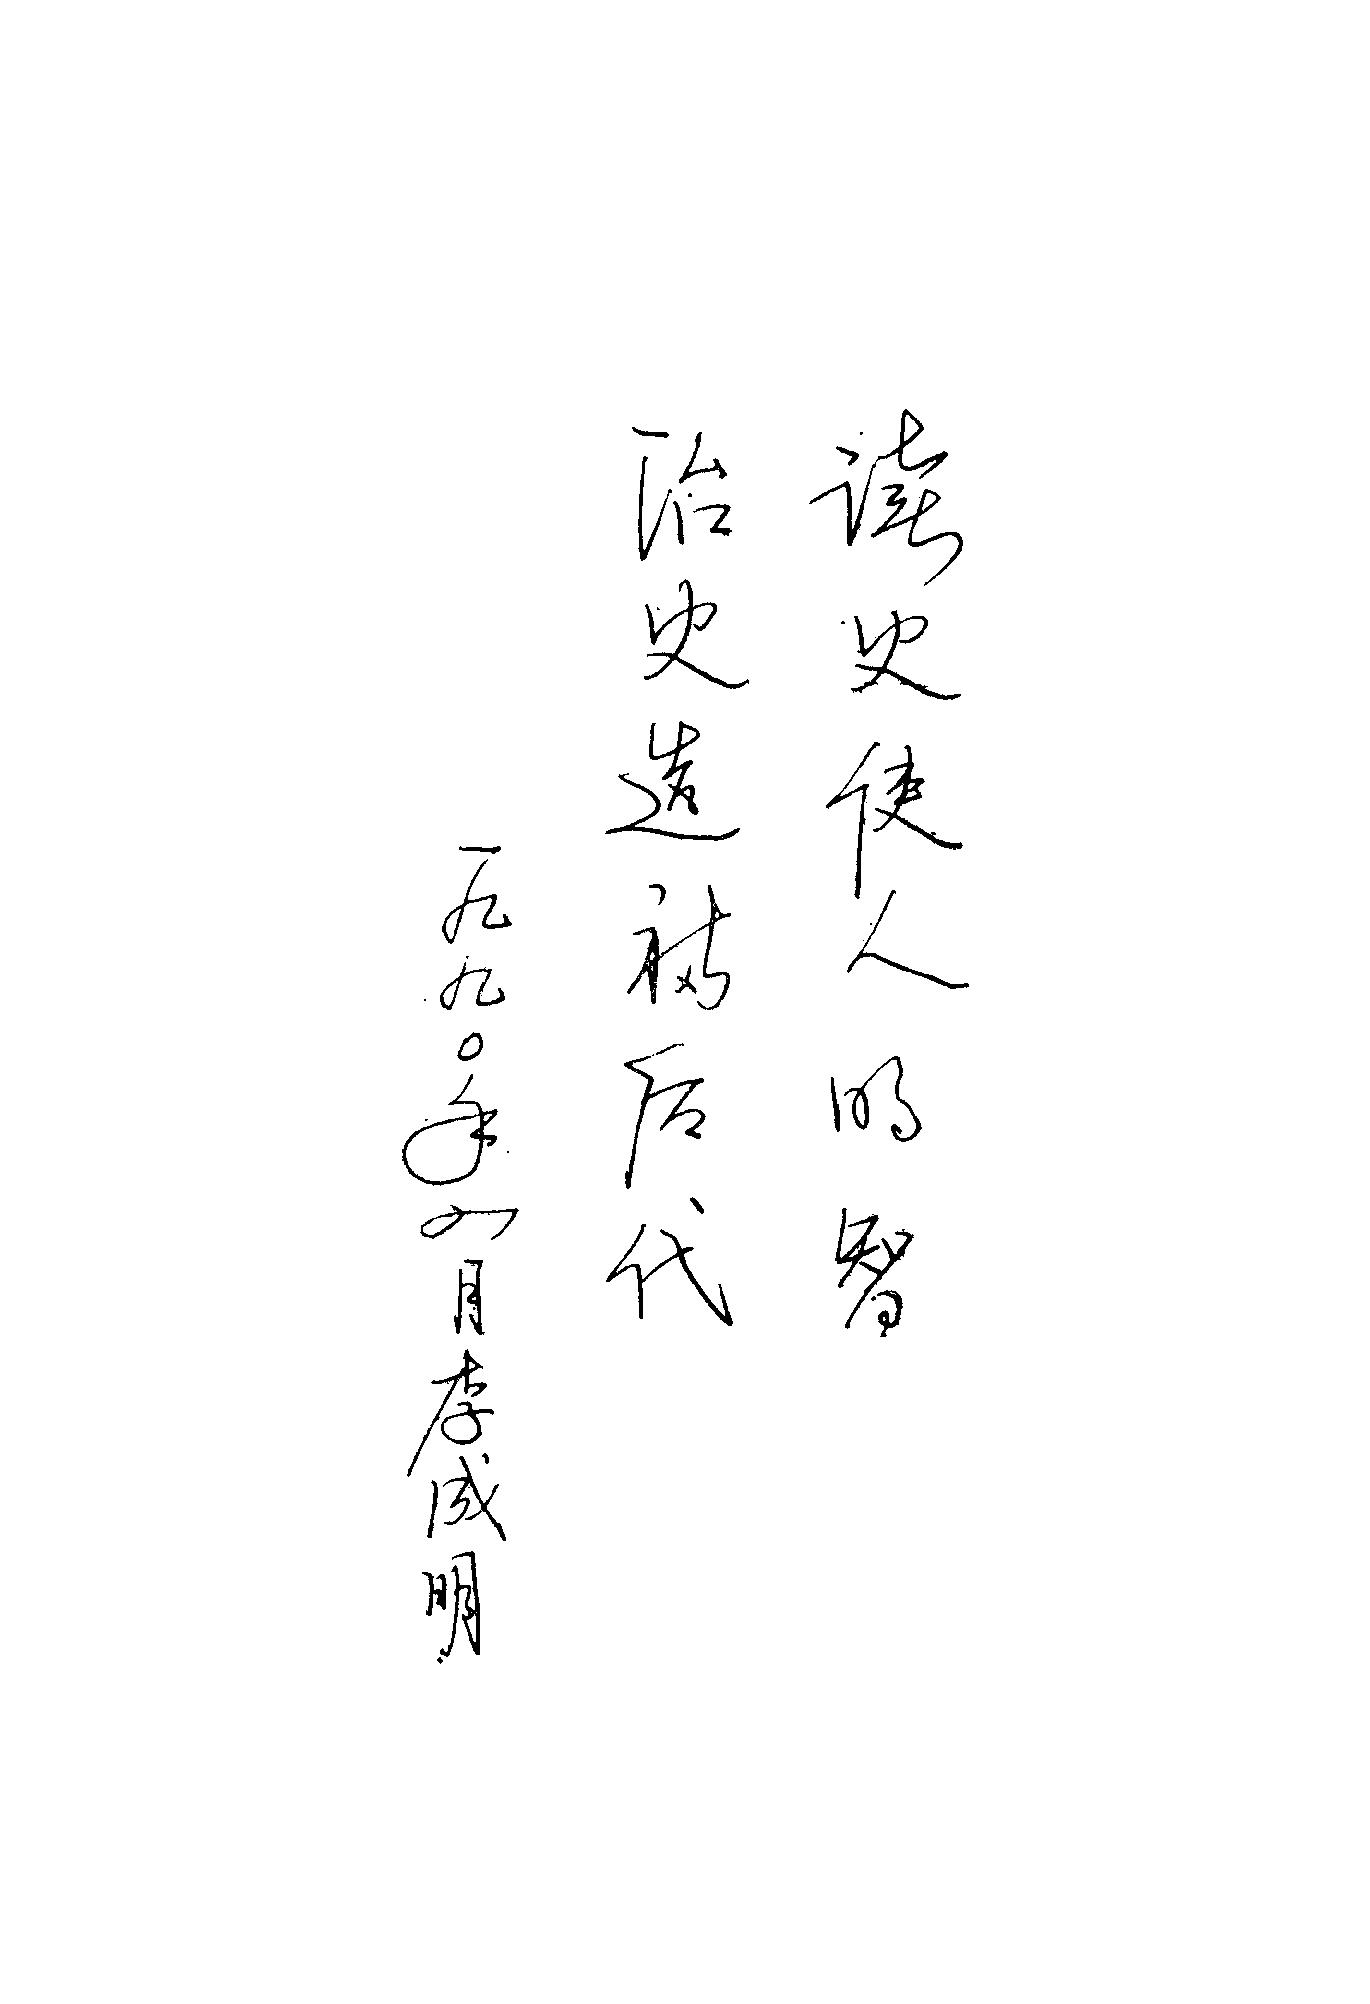 读史使人明智
治史造福后代
一九九〇年八月李成明